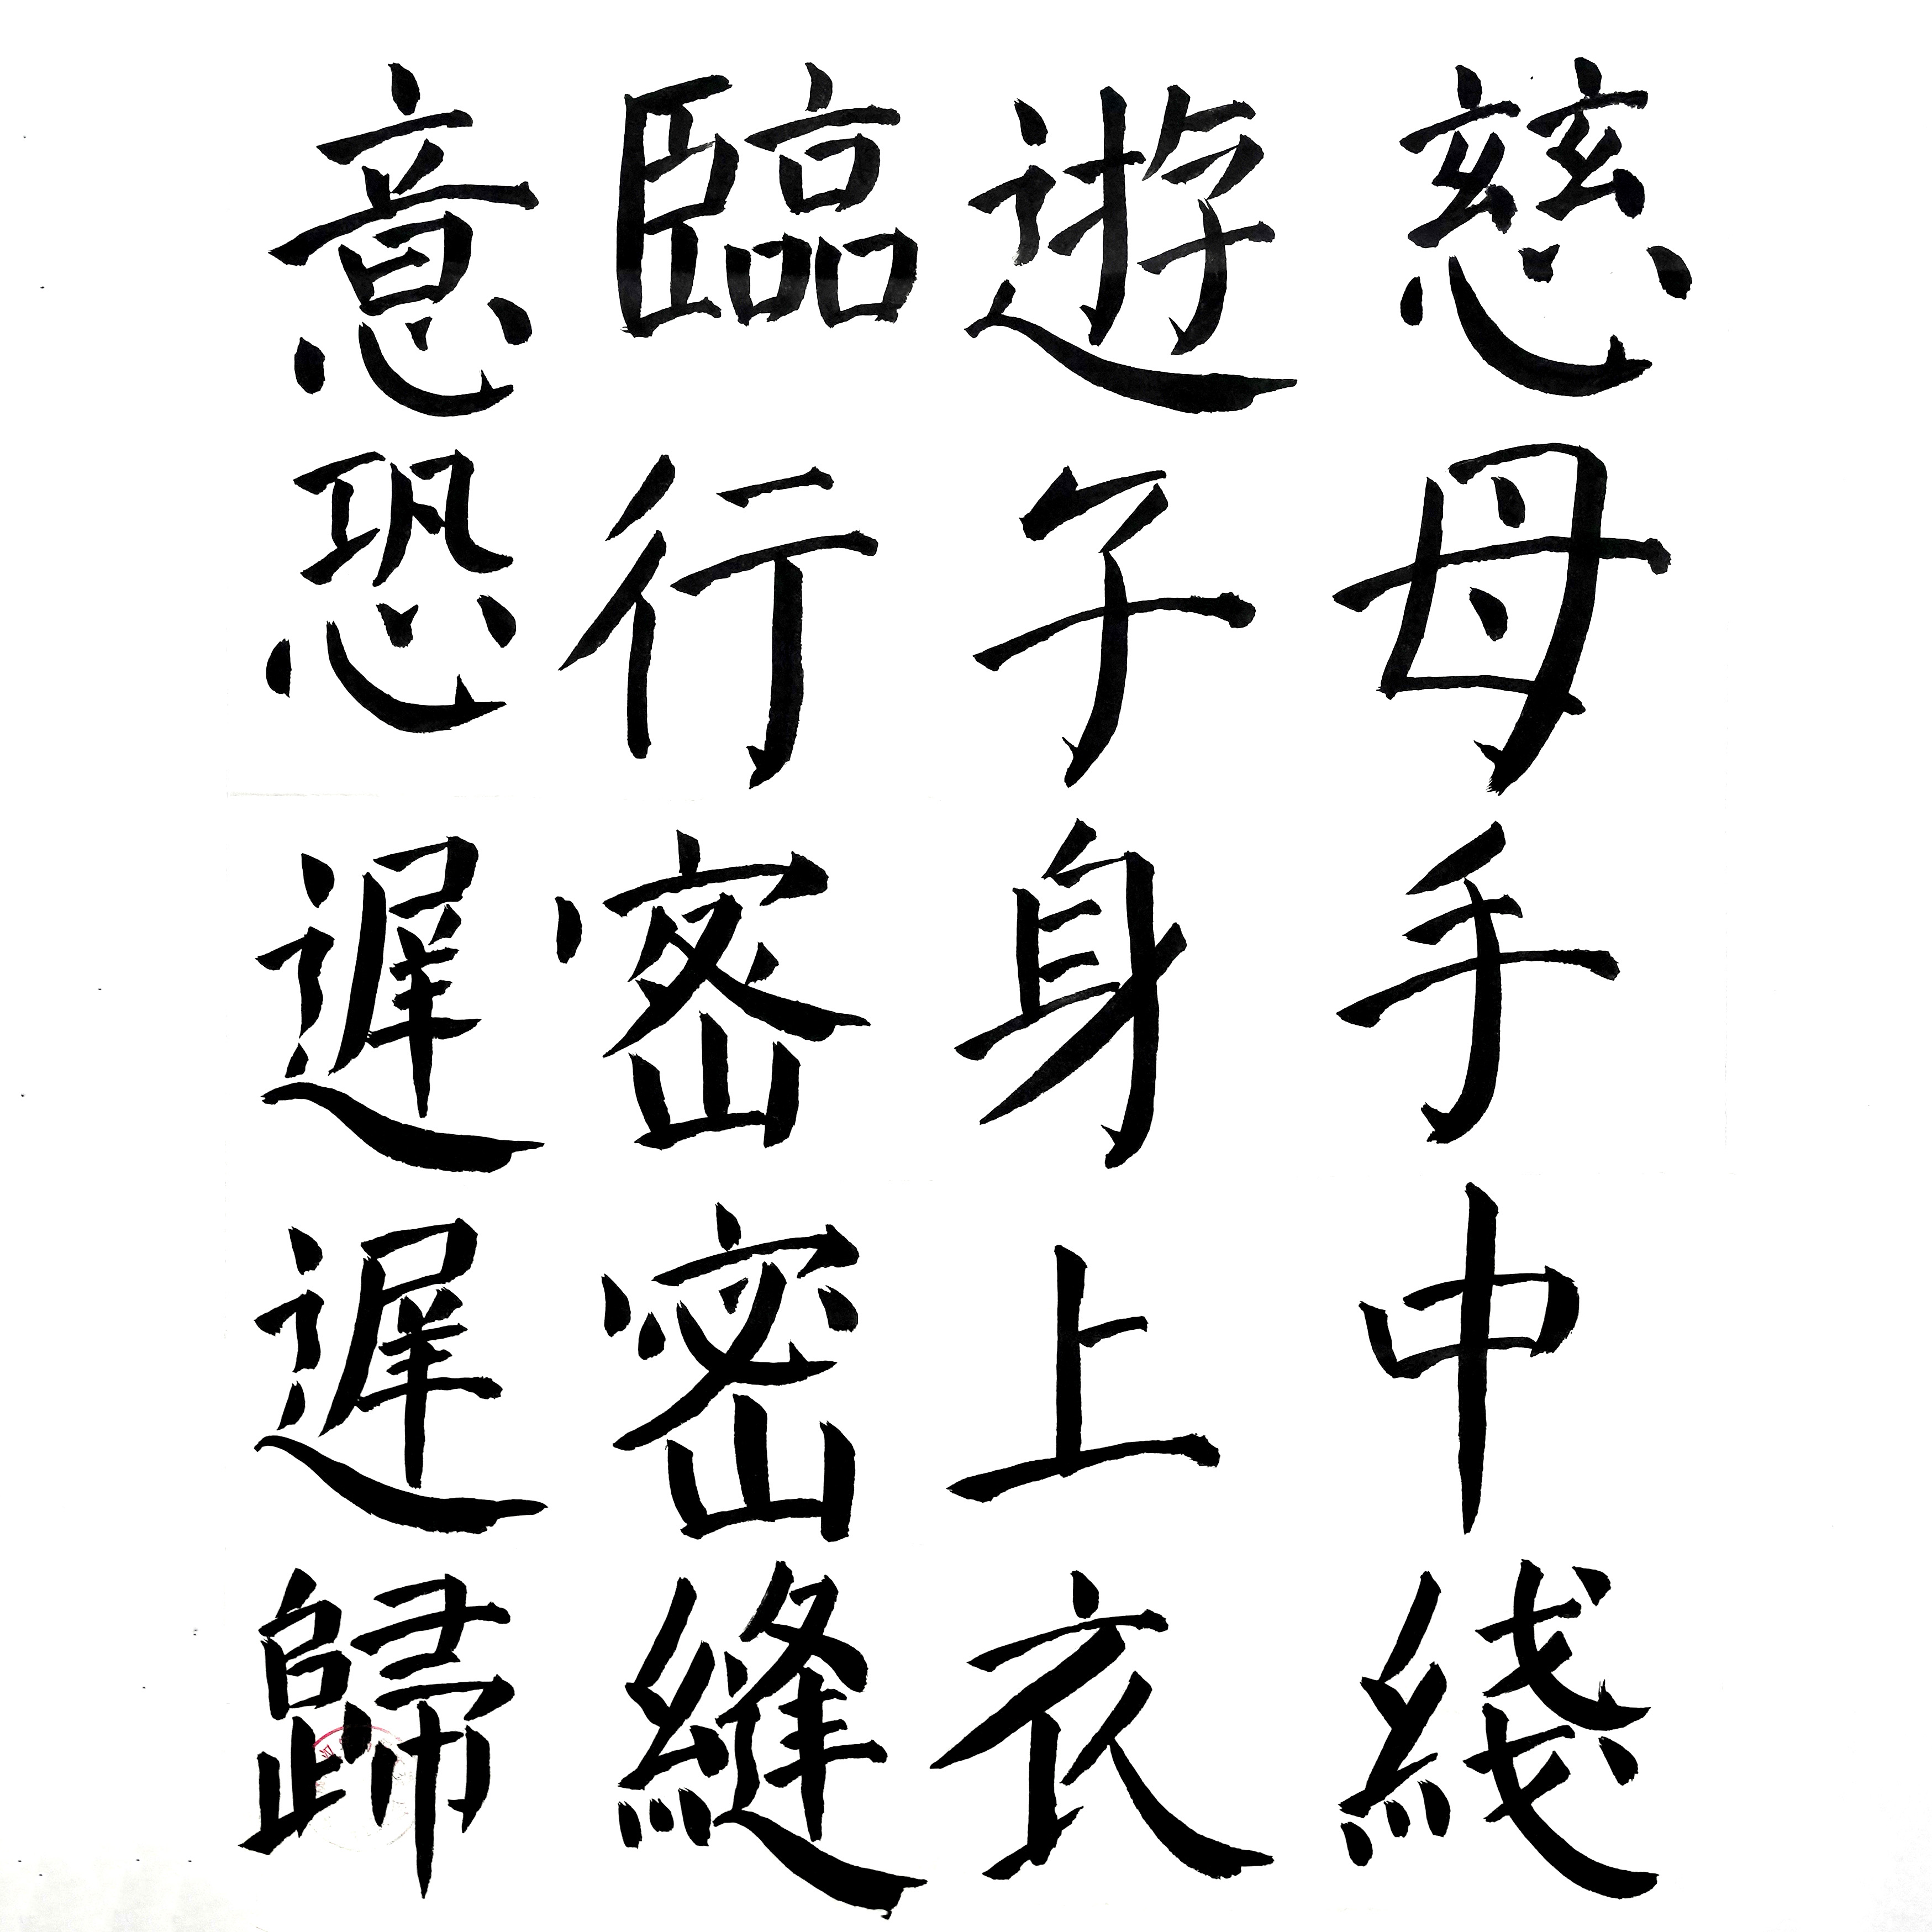 慈母手中綫
遊子身上衣
臨行密密縫
意恐遲遲歸